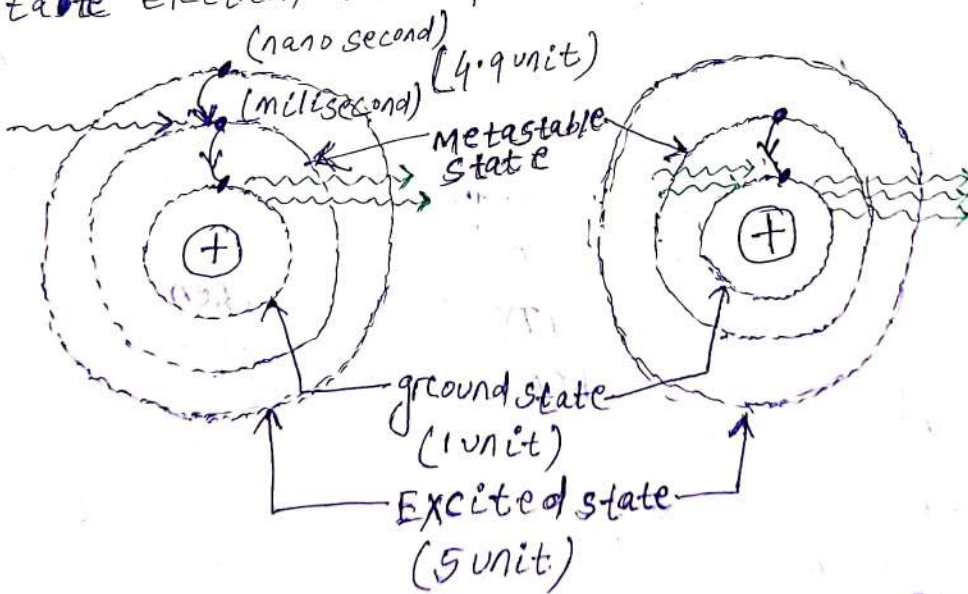 (nano second)
(4.9 unit)
(milisecond)
Metastable
state
+
+
ground state
(1 unit)
Excited state
(5 unit)